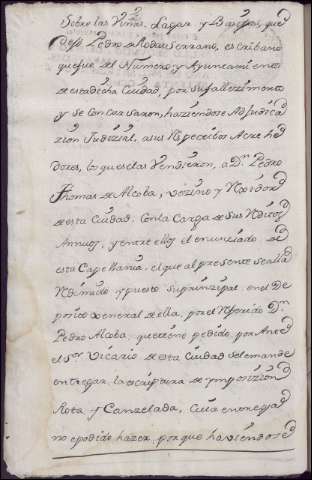 Sobre las Viñas, Lagar y Bodegas, que
dejò Pedro de Rodas Serrano, escribano
que fue del Numero y Ayuntami.ento
de esta dicha Ciudad, por su fallezimiento
y se Concursaron, haziendose Adjudica
zion Judizial, a sus Respecibos Acrehe
dores, los que se las Vendieron, a D.n Pedro
Thomas de Alcoba, Vezino y Rexidor
de esta Ciudad. Con la Carga de sus Reditos
Annuos, y entre ellos el enunciado de
esta Capellania, el que al presente se alla
Redimido y puesto su prinzipal en el De
posito General de ella, por el Referido D.n
Pedro Alcoba, que tiene pedido, por Ante
el S.or Vicario de esta Ciudad se le mande
entregar, la escriptura de ymposizion
Rota y Canzelada, Cuia entrega
no e podido hazer, porque haviendose